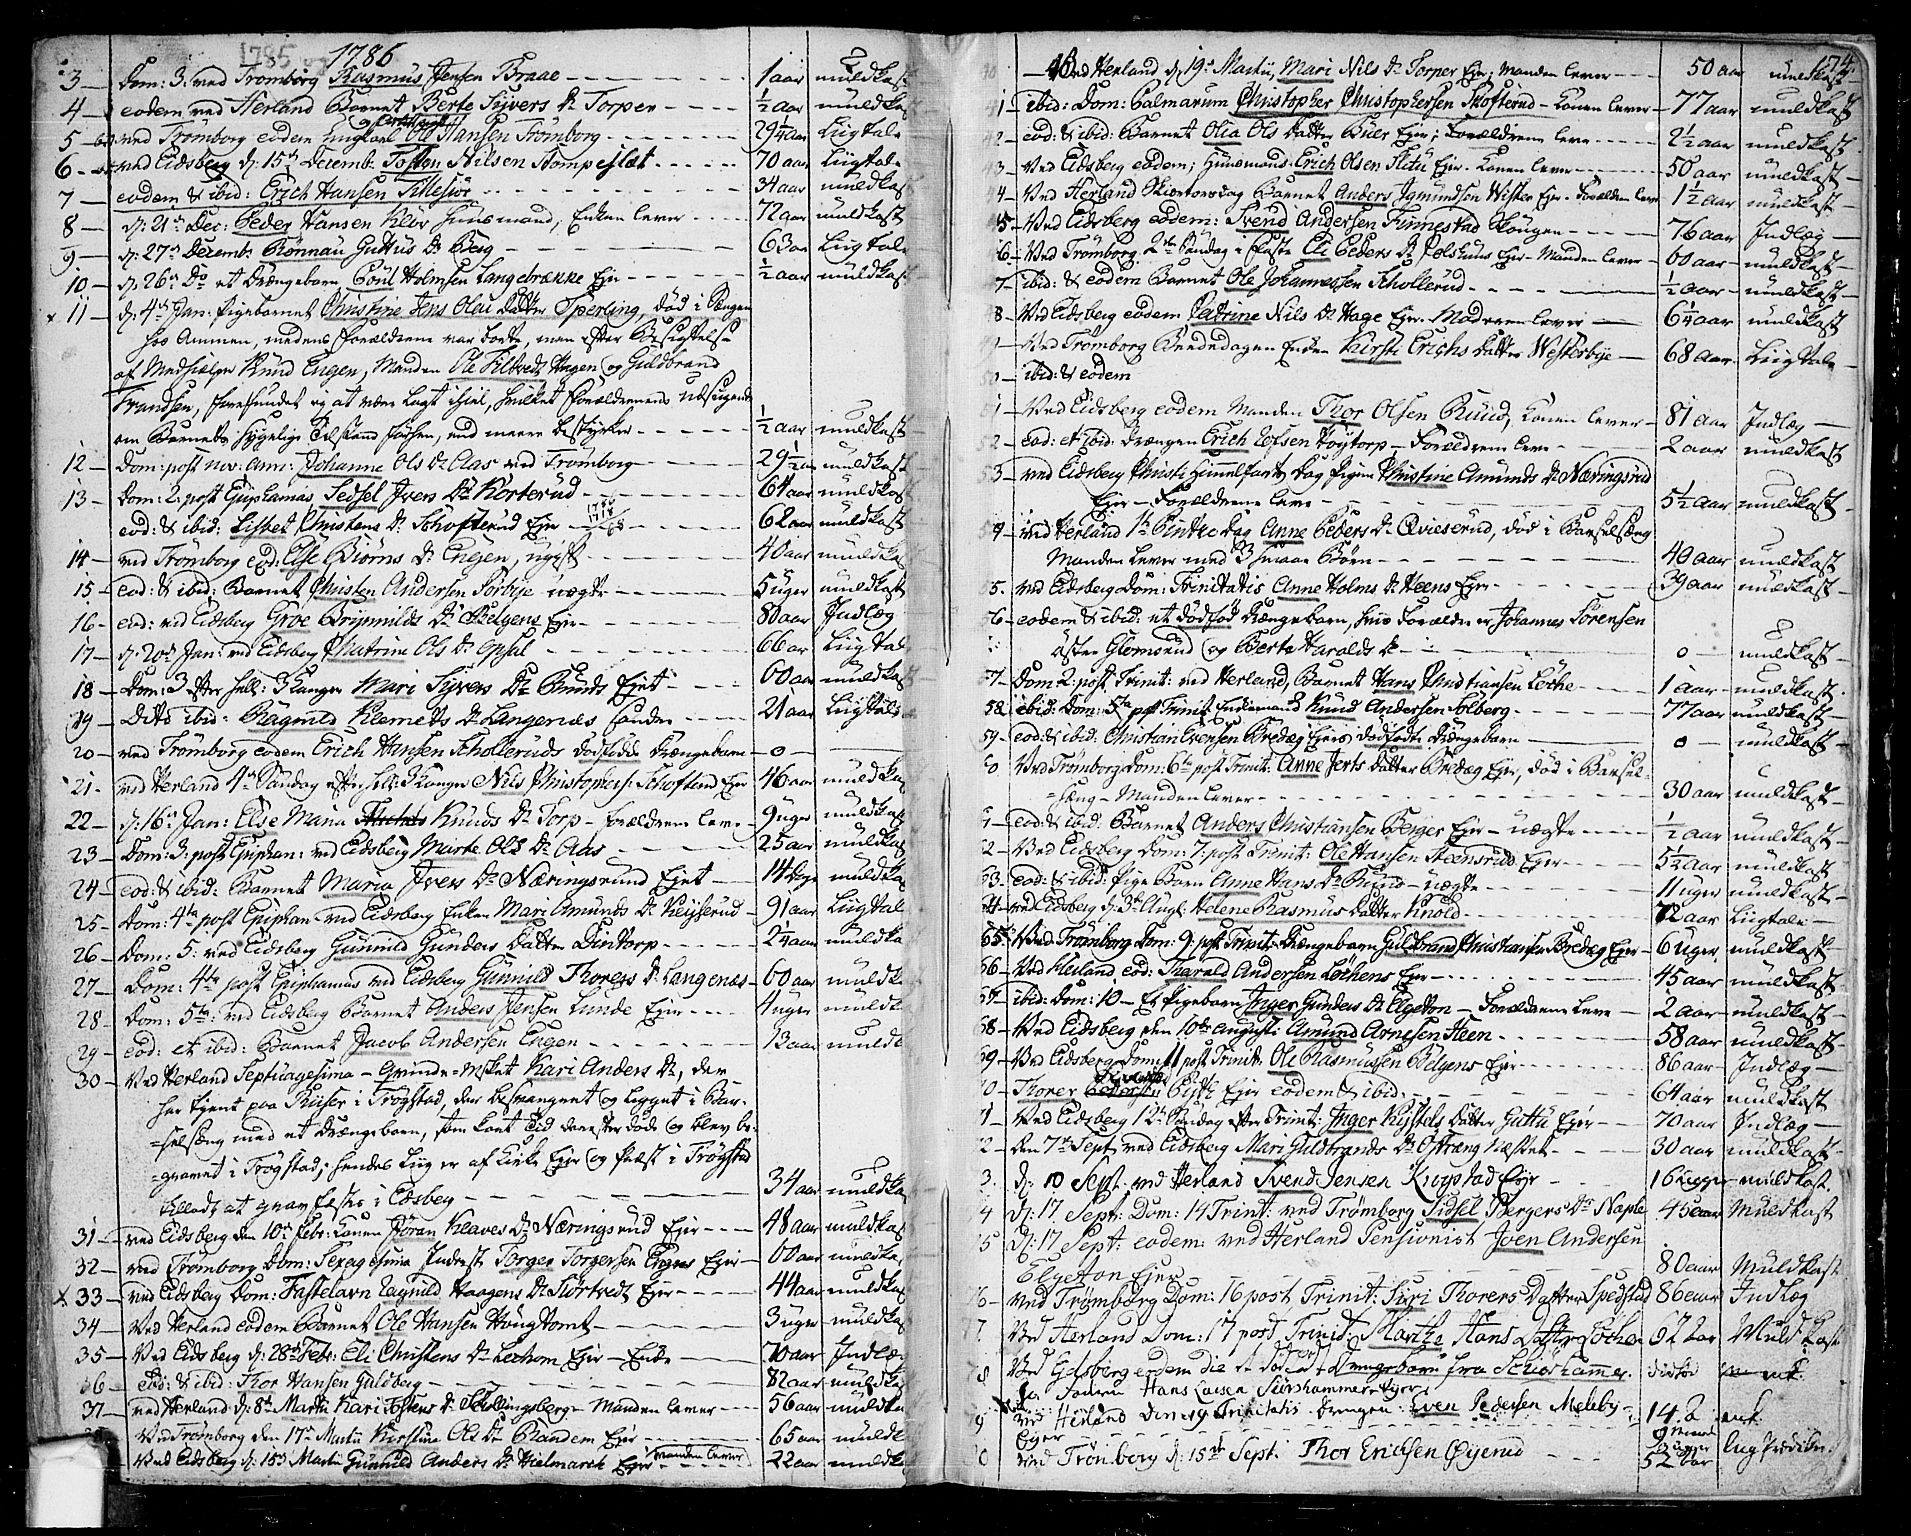 1785 1786
3 — Dom: 3. ved Trømborg Rasmus Jensen Braae — 1 aar muldkast
4 — eodem ved Herland Barnet Berte Sivers D. Torper — ½ aar muldkast
5 — ved Trømborg eodem Ungkarl Ole Hansen Trømborg — 29¼ aar Liigtale
6 — ved Eidsberg d: 15de Decemb: Tosten Nilsen Stompeslæt — 70 aar Liigtale
7 — eodem & ibid: Erich Hansen Sillesiør — 34 aar muldkast
8 — d: 21de Dec: Peder Hansen Kløv huusmand; Enken lever — 72 aar muldkast
9 — d: 27de Decemb: Rønnau Guttus D. Berg — 63 aar Liigtale
10 — d: 26de Do et Drængebarn Poul Holmsen Langebrække Eier — ½ aar muldkast
11 — d: 4de Jan: Pigebarnet Christine Jens Olai Datter Sperling, død i Sængen
hos Ammen, medens Forældrene var borte, men efter Besigtelse
af Medhielper Knud Engen, Manden Ole Tiltvedt Hagen og Guldbrand
Frandsen, forefundet og at være lagt ihiel, hvilket Forældrenes Udsigende
om Barnets sygelige Tilstand forhen, end meere bestyrker — ½ aar muldkast
12 — Dom: post nov: ann: Johanne Ols D. Aas ved Trømborg — 29½ aar muldkast
13 — Dom: 2. post Epiphanias Sedsel Ivers D. Korterud — 64 aar muldkast
eod: & ibid: Lisbet Christens D. Schofterud Eier — 62 aar muldkast
14 — ved Trømborg eod: Else Biørns D. Engen, ugift — 40 aar muldkast
15 — eod: & ibid: Barnet Christen Andersen Sørbye uægte — 5 uger muldkast
16 — eod: ved Eidsberg Groe Brynnilds D. Helgens Eier — 80 aar Indlæg
17 — d: 20de Jan: ved Eidsberg Chatrine Ols D. Opsal — 66 aar Liigtal
18 — Dom: 3 efter hell: 3 Konger Mari Sivers D. Ruuds Eiet — 60 aar muldkast
19 — Ditto ibid: Ragnild Klemets D. Langenæs Sander — 21 aar Liigtale
20 — ved Trømborg eodem Erich Hansen Scholleruds dødfødde Drængebarn — 0 —
21 — ved Herland 4de Søndag efter hell: 3 Konger Nils Christophers: Schofterud Eier 46 aar muldkast
22 — d: 16de Jan: Else Maria Knuds D. Torp — Forældrene leve — 9 uger muldkast
23 — Dom: 3. post Epiphan: ved Eidsberg Marte Ols D. Aas — 25 aar muldkast
24 — eod: & ibid: Barnet Maria Ivers D. Næringsrund Eiet — 14 dage muldkast
25 — Dom: 4ta post Epiphan ved Eidsberg Enken Mari Amunds D. Keyserud — 91 aar Liigtal
26 — Dom: 5: ved Eidsberg Gunnild Gunders Datter Dintorp — 2¼ aar muldkast
27 — Dom: 4ta post Epiphanias ved Eidsberg Gunnild Thorers D. Langenæs — 60 aar muldkast
28 — Dom: 5ta: ved Eidsberg Barnet Anders Jensen Lunde Eier — 4 uger muldkast
29 — eod: et ibid: Barnet Jacob Andersen Engen — 13 aar muldk
30 — Ved Herland Septuagesima — Qvinde-Mskt Kari Anders D., der
har tient paa Huser i Trøgstad, der besvangret og ligget i Bar-
=selsæng med et Drængebarn, som kort Tid derefter døde og blev be-
=gravet i Trøgstad; hendes Liig er af Kirke Eier og Præst i Trøgstad
tilladt at gravfæstes i Edsberg — 34 aar muldka
31 — ved Eidsberg den 10de Febr: Konen Jøran Klaves D. Næringsrud Eier — 48 aar muldka
32 — ved Trømborg Dom: Sexagesima Inderst Torger Torgersen Engnes Eier — 60 aar muldka
33 — ved Eidsberg Dom: Fastelavn Lagnild Haagens D. Tiørtvedt Eier — 44 aar muldka
34 — Ved Herland eodem Barnet Ole Hansen Haugtomt — 3 uger muldka
35 — Ved Eidsberg d: 28de Febr: Eli Christens D. Lechom Eier — Enke — 70 aar Indlæ
36 — Eod: & ibid: Thor Hansen Guldberg — 82 aar muldk
37 — ved Herland d: 8de Martii Kari Tostens D. Schillingsberg Manden lever — 56 aar muldka
Ved Trømborg den 17de Martii Kirstine Ols D. Brandem Eier — 65 aar muldk
Ved Eidsberg d: 15de Martii Gunnild Anders D. Hielmark Eier Manden lever — 22 aar muldka
174
40 — Ved Herland d: 19de Martii, Mari Nils D. Torper Eier; Manden lever — 50 aar muldkast
41 — ibid: Dom: Palmarum Christopher Christophersen Skofterud — Konen lever — 77 aar muldkast
42 — eod: & ibid: Barnet Olia Ols Datter Buer Eier; Forældrene leve — 2½ aar muldkast
43 — Ved Eidsberg eodem; Huusmand Erich Olsen Eier. Konen lever — 50 aar muldkast
44 — Ved Herland Skiertorsdag Barnet Anders Igmundsen Wister Eier — Forældrene leve 1½ aar muldkast
45 — Ved Eidsberg eodem: Svend Andersen Finnestad Skougen — 76 aar Indlæg
6 — Ved Trømborg 2den Søndag i Faste Eli Peders D. Folshuus Eier — Manden lever — 60 aar muldkast
7 — ibid: & eodem Barnet Ole Johannessen Schollerud — ½ aar muldkast
48 — Ved Eidsberg eodem: Catrine Nils D. Hage Eier. Moderen lever — 6¼ aar muldkast
Ved Trømborg Beededagen Enken Kirsti Erichs Datter Westerbye — 68 aar Liigtale
50 — ibid: & eodem
51 — Ved Eidsberg eodem Manden Thor Olsen Ruud, Konen lever — 81 aar Indlæg
52 — eod: et ibid: Drængen Erich Eefsen Høytorp — Forældrene leve — 2 aar muldkast
53 — ved Eidsberg Christi Himmelfarts Dag Pigen Christine Amunds D. Næringsrud
Eier — Forældrene leve — 5½ aar muldkast
54 — ved Herland 1ste Pintze Dag Anne Peders D. Qvieserud, død i Barselsæng
Manden lever med 3 smaae Børn — 40 aar muldkast
5. — ved Eidsberg Dom: Trinitatis Anne Holms D. Heens Eier — 39 aar muldkast
6 — eodem & ibid: et dødfød Drængebarn, hvis Forældre er Johannes Sørensen
østen Glomsrud og Berte Haralds D. — 0 — muldkast
57 — Dom 2: post Trinit: ved Herland, Barnet Hans Christiansen Løche — 1 aar muldkast
58 ibid: Dom: 5ta post Trinit Enkemand Knud Andersen Solberg — 77 aar muldkast
59 — eod: & ibid: Christian Evensen Bredæg Eiers dødfødte Drængebarn — 0 — muldkast
60 Ved Trømborg Dom: 6ta post Trinit: Anne Jerts Datter Bredæg Eier, død i Barsel-
=sæng — Manden lever — 30 aar muldkast
1 — eod: & ibid: Barnet Anders Christiansen Berger Eier — uægte — ½ aar muldkast
2 — Ved Eidsberg Dom: 7: post Trinit: Ole Hansen Steensruds Eier — 5¼ aar muldkast
63 — eod: & ibid: Pige Barn Anne Hans D. Ruud — uægte — 11 uger muldkast
64 — ved Eidsberg d: 3de Aug: Helene Rasmus Datter Knold — 72 aar Liigtale:
65 — Ved Trømborg Dom: 9: post Trinit: Drængebarn Guldbrand Christiansen Bredæg Eier — 6 uger muldkast
66 — Ved Herland eod: Tharald Andersen Løchens Eier — 45 aar muldkast
67 — ibid: Dom: 10 — Et Pigebarn Inger Gunders D. Elgeton — Forældrene leve — 2 aar muldkast
68 — Ved Eidsberg den 10de Augusti Amund Arnesen Heen — 58 aar muldkast
69 — Ved Eidsberg Dom: 11 post Trinit: Ole Rasmusen Helgens Eier — 86 aar Indlæg
70 — Thorer Eier eodem & ibid: — 64 aar muldkast
1 — Ved Eidsberg 12te Søndag efter Trinit: Inger Kystels Datter Guttu Eier — 70 aar Indlæg
2 — Den 7de Sept: ved Eidsberg Mari Guldbrands D. Østrang Næstet — 30 aar muldkast
3. d: 10 Sept: ved Herland Svend Jensen Krogstad Eyr — 16 uger muldkast
4 d: 17 Sept: Dom: 14 Trinit: ved Trømborg Sidsel Bergers Dr Naple 45 aar Muldkast
5 d: 17 Sept: eodem: ved Herland Pensionist Joen Andersen
Elgeton Ejer — 80 aar Muldkast
6 — ved Trømborg Dom: 16 post Trinit: Siri Thorers Datter Spedstad 86 aar Indlæg
7. Ved Herland Dom: 17 post Trinit: Marthe Hans Datter Løchen 62 aar Muldkast
8 Ved Edsberg eodem die et dødfødt Drengebarn fra Schiørshammer.
Faderen Hans Larsen Siørshammer Eyer
9 ved Herland Den 19 Trinitatis Drengen Even Pedersen Meleby — 14
Eyer
0 ved Trømborg d: 15de Sept. Thor Erichsen Øyerud — 52 aar Liig Prædiken